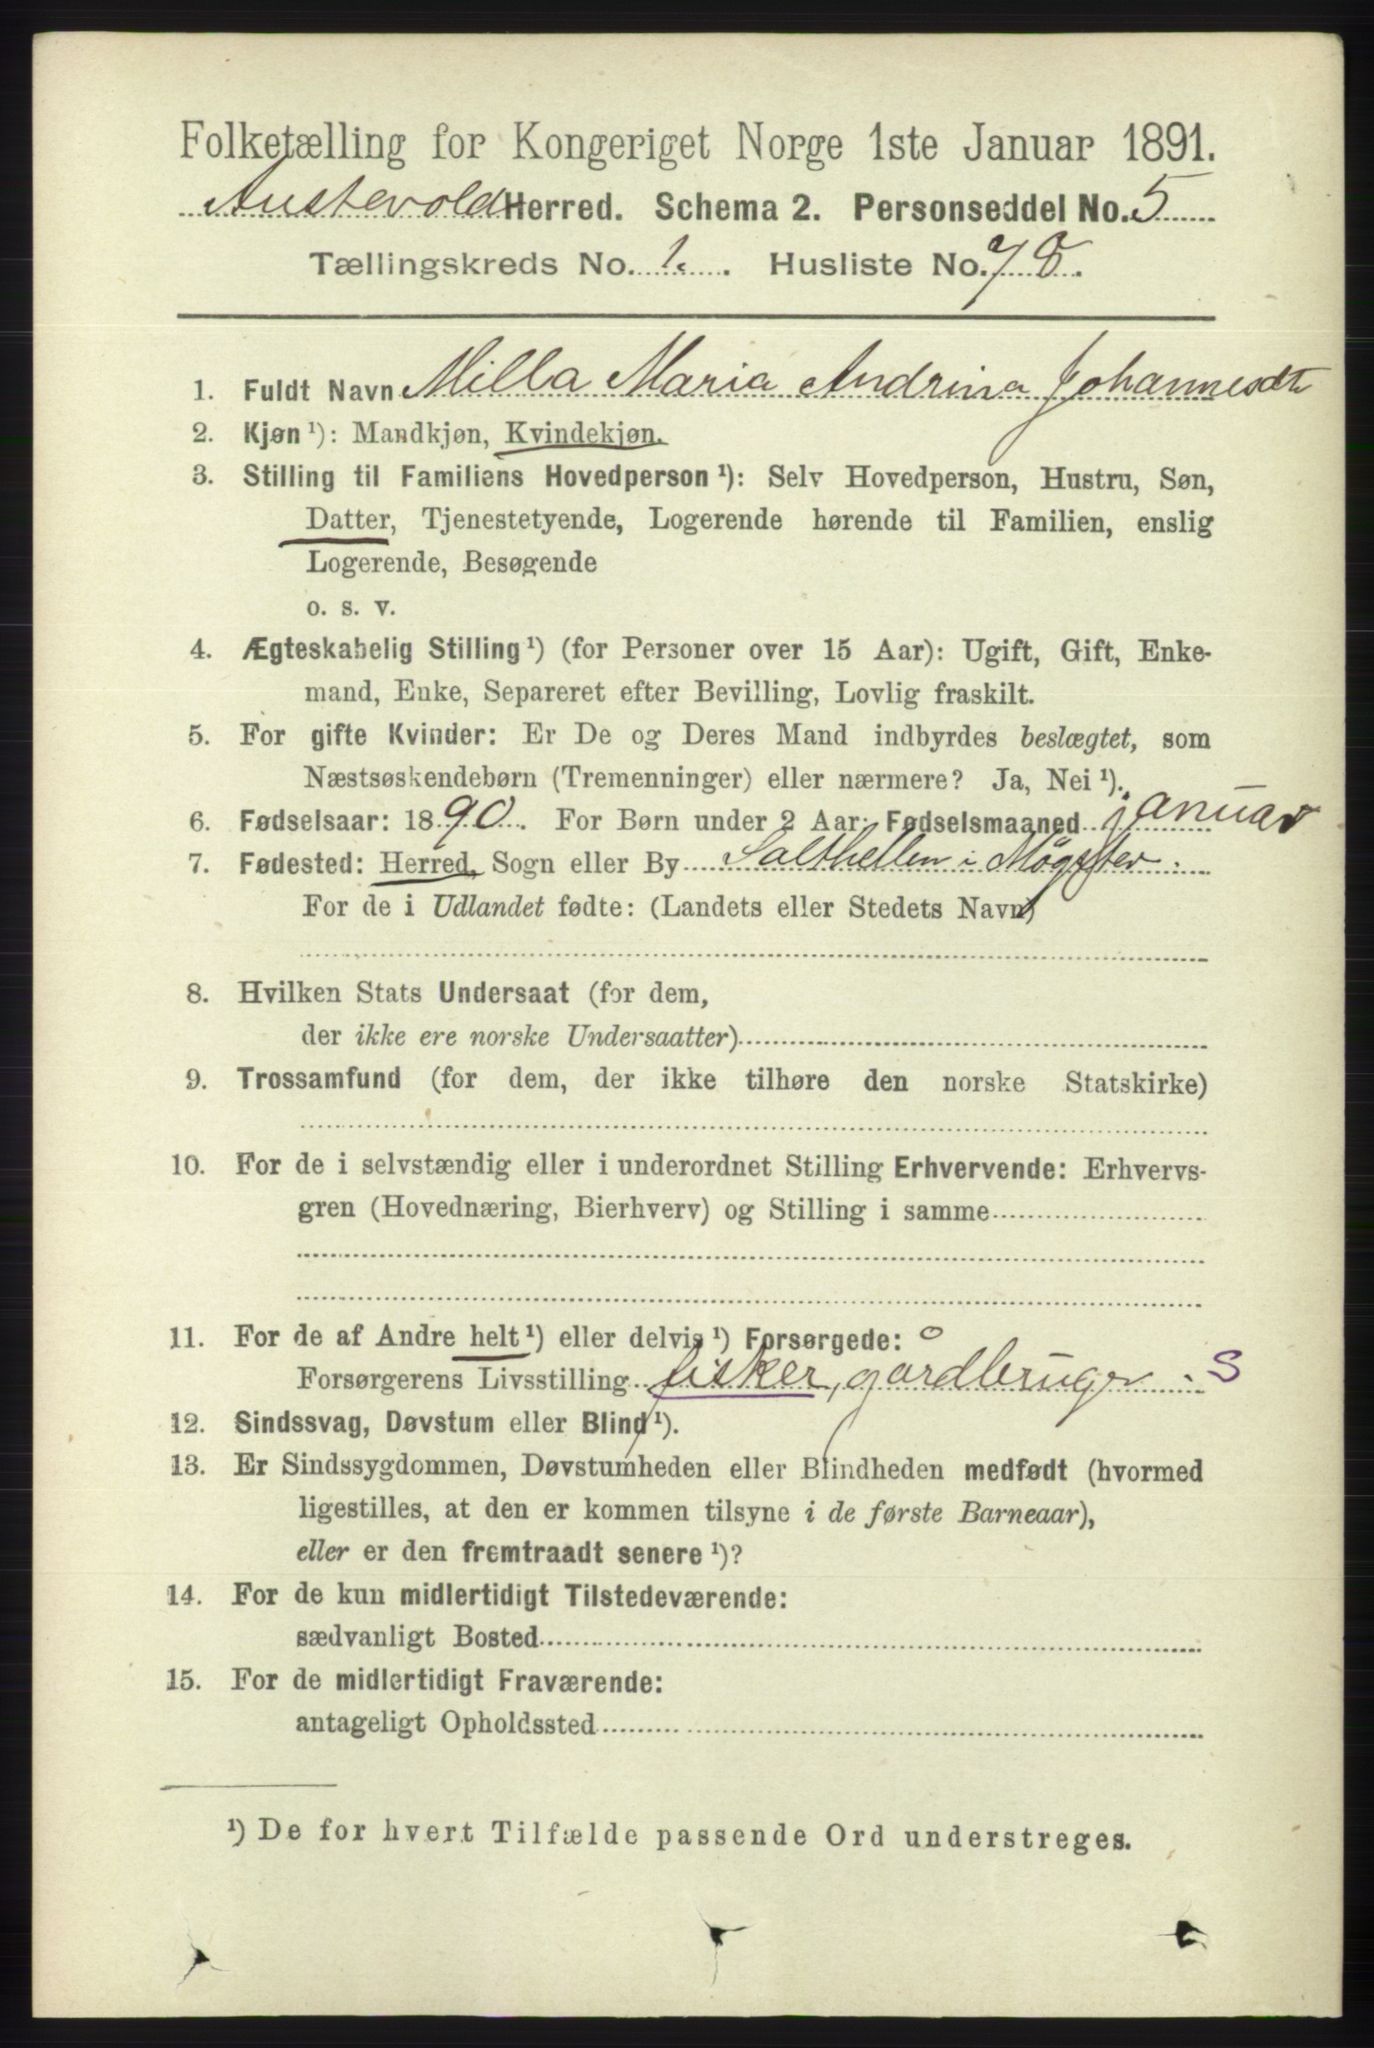 Folketælling for Kongeriget Norge 1ste Januar 1891.
Austevold Herred. Schema 2. Personseddel No. 5
Tællingskreds No. 1. Husliste No. 78.
1. Fuldt Navn Milla Maria Andrina Johannesdt
2. Kjøn ¹): Mandkjøn, Kvindekjøn.
3. Stilling til Familiens Hovedperson ¹): Selv Hovedperson, Hustru, Søn,
Datter, Tjenestetyende, Logerende hørende til Familien, enslig
Logerende, Besøgende
o. s. v.
4. Ægteskabelig Stilling ¹) (for Personer over 15 Aar): Ugift, Gift, Enke-
mand, Enke, Separeret efter Bevilling, Lovlig fraskilt.
5. For gifte Kvinder: Er De og Deres Mand indbyrdes beslægtet, som
Næstsøskendebørn (Tremenninger) eller nærmere? Ja, Nei ¹).
6. Fødselsaar: 1890. For Børn under 2 Aar: Fødselsmaaned januar
7. Fødested: Herred, Sogn eller By Salthellen i Møgster.
For de i Udlandet fødte: (Landets eller Stedets Navn)
8. Hvilken Stats Undersaat (for dem,
der ikke ere norske Undersaatter)
9. Trossamfund (for dem, der ikke tilhøre den norske Statskirke)
10. For de i selvstændig eller i underordnet Stilling Erhvervende: Erhvervs-
gren (Hovednæring, Bierhverv) og Stilling i samme
11. For de af Andre helt ¹) eller delvis ¹) Forsørgede:
Forsørgerens Livsstilling fisker, gårdbruger S
12. Sindssvag, Døvstum eller Blind ¹).
13. Er Sindssygdommen, Døvstumheden eller Blindheden medfødt (hvormed
ligestilles, at den er kommen tilsyne i de første Barneaar),
eller er den fremtraadt senere ¹)?
14. For de kun midlertidigt Tilstedeværende:
sædvanligt Bosted
15. For de midlertidigt Fraværende:
antageligt Opholdssted
¹) De for hvert Tilfælde passende Ord understreges.